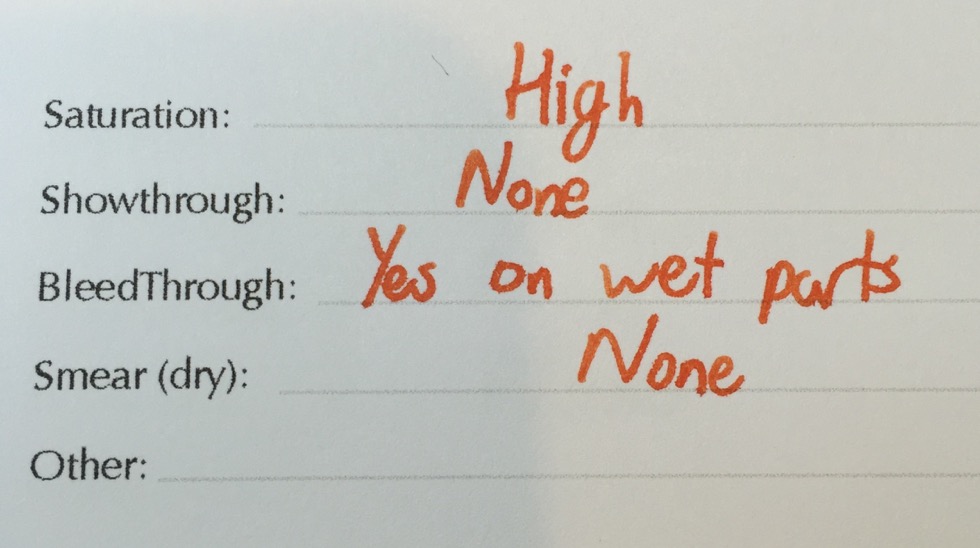 Saturation: High
Showthrough: None
BleedThrough: Yes on wet parts
Smear (dry): None
Other: